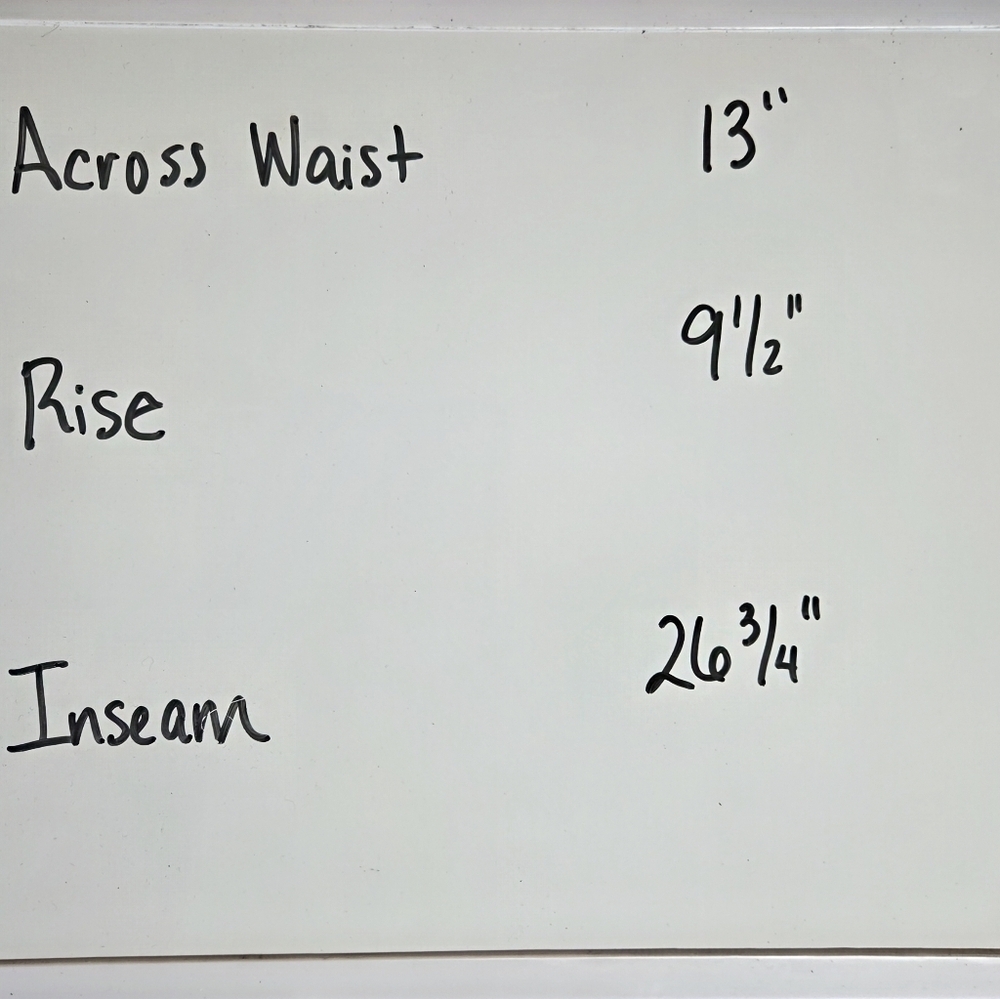 Across Waist 13"
Rise 9 1/2"
Inseam 26 3/4"